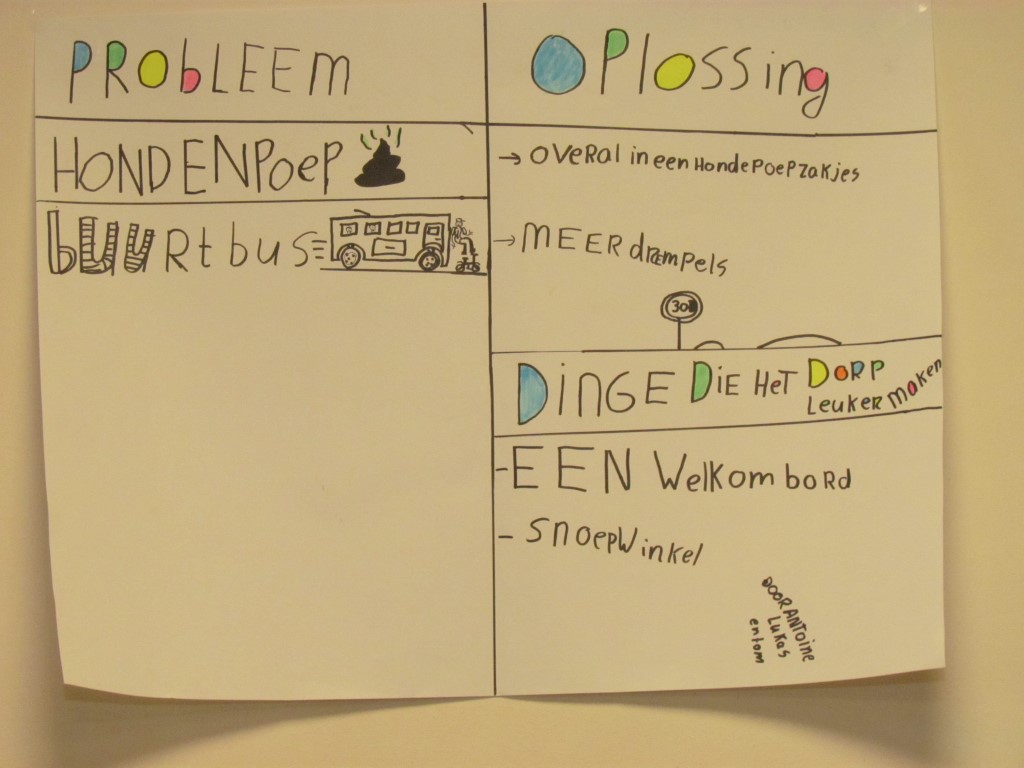 PRObLEEm
OPlossing
HONDENPoeP
→ OVeRal in een HondePoePzakjes
bUURtbus
→ MEER drempels
30
DiNGE DiE HeT DORP
Leuker maken
- EEN Welkom boRd
- SnoepWinkel
DOOR ANTOine
Lukas
en tom